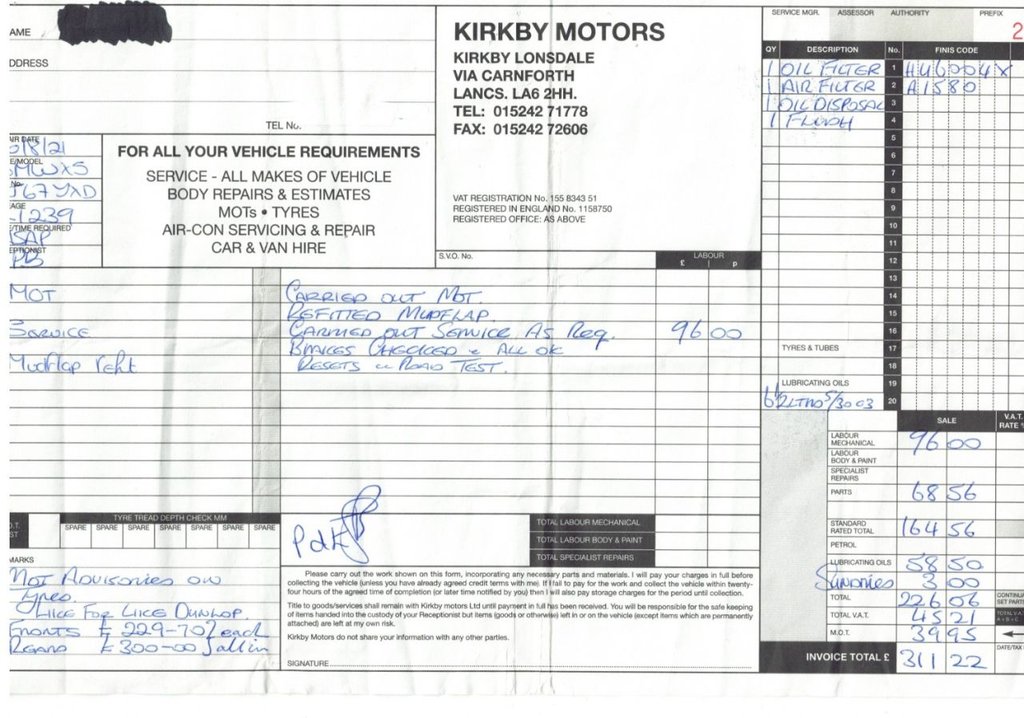 AME
DDRESS
TEL No.
KIRKBY MOTORS
KIRKBY LONSDALE
VIA CARNFORTH
LANCS. LA6 2HH.
TEL: 015242 71778
FAX: 015242 72606
VAT REGISTRATION No. 155 8343 51
REGISTERED IN ENGLAND No. 1158750
REGISTERED OFFICE: AS ABOVE
S.V.O. No.
LABOUR
£ p
FOR ALL YOUR VEHICLE REQUIREMENTS
SERVICE - ALL MAKES OF VEHICLE
BODY REPAIRS & ESTIMATES
MOTs • TYRES
AIR-CON SERVICING & REPAIR
CAR & VAN HIRE
/8/21
E/MODEL
MWX5
No.
67YXD
AGE
1239
E/TIME REQUIRED
SAP
EPTIONIST
PB
SERVICE MGR. ASSESSOR AUTHORITY PREFIX
2
QY DESCRIPTION No. FINIS CODE
1 OIL FILTER 1 HU6004X
1 AIR FILTER 2 A1580
1 OIL DISPOSAL 3
1 FLUSH 4
5
6
7
8
9
10
11
12
13
14
15
16
TYRES & TUBES 17
18
LUBRICATING OILS 19
6½LTRS 5/30 03 20
MOT
SERVICE
Mudflap refit
CARRIED OUT MOT.
REFITTED MUDFLAP.
CARRIED OUT SERVICE AS REQ. 96 00
BRAKES CHECKED & ALL OK
RESETS & ROAD TEST.
SALE V.A.T. RATE %
LABOUR MECHANICAL 96 00
LABOUR BODY & PAINT
SPECIALIST REPAIRS
PARTS 68 56
STANDARD RATED TOTAL 164 56
PETROL
LUBRICATING OILS 58 50
Sundries 3 00
TOTAL 226 06
TOTAL V.A.T. 45 21
M.O.T. 39 95
INVOICE TOTAL £ 311 22
CONTINU
SET PART
TOTAL V.A
A + B + C
DATE/TAX
TYRE TREAD DEPTH CHECK MM
SPARE SPARE SPARE SPARE SPARE SPARE SPARE
Pd
TOTAL LABOUR MECHANICAL
TOTAL LABOUR BODY & PAINT
TOTAL SPECIALIST REPAIRS
MARKS
MOT ADVISORIES ON
TYRES.
LIKE FOR LIKE DUNLOP.
FRONTS £ 229-70 each
REARS £300-00 all in
Please carry out the work shown on this form, incorporating any necessary parts and materials. I will pay your charges in full before
collecting the vehicle (unless you have already agreed credit terms with me). If I fail to pay for the work and collect the vehicle within twenty-
four hours of the agreed time of completion (or later time notified by you) then I will also pay storage charges for the period until collection.
Title to goods/services shall remain with Kirkby motors Ltd until payment in full has been received. You will be responsible for the safe keeping
of items handed into the custody of your Receptionist but items (goods or otherwise) left in or on the vehicle (except items which are permanently
attached) are left at my own risk.
Kirkby Motors do not share your information with any other parties.
SIGNATURE